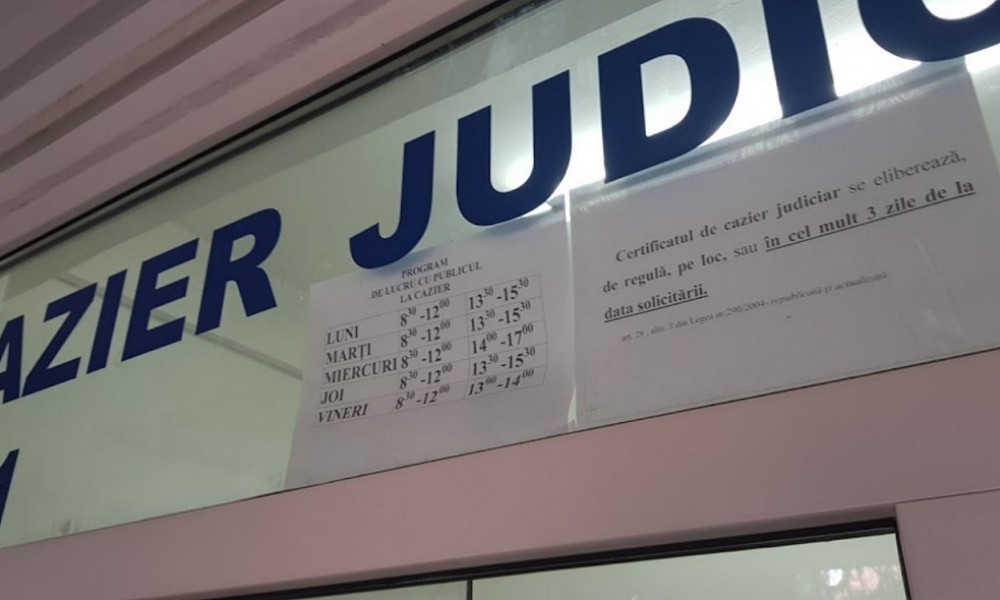 AZIER JUDIC
PROGRAM
DE LUCRU CU PUBLICUL
LA CAZIER
LUNI 8³⁰-12⁰⁰ 13³⁰-15³⁰
MARȚI 8³⁰-12⁰⁰ 13³⁰-15³⁰
MIERCURI 8³⁰-12⁰⁰ 14⁰⁰-17⁰⁰
JOI 8³⁰-12⁰⁰ 13³⁰-15³⁰
VINERI 8³⁰-12⁰⁰ 13⁰⁰-14⁰⁰
Certificatul de cazier judiciar se eliberează,
de regulă, pe loc, sau în cel mult 3 zile de la
data solicitării.
art. 28, alin. 1 din Legea nr.290/2004- republicată și actualizată